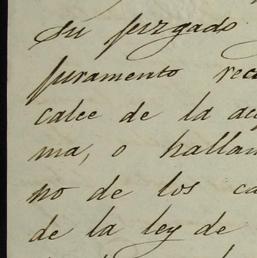 su juzgado
juramento rec
calce de la a
ma, o hallan
no de los ca
de la ley de